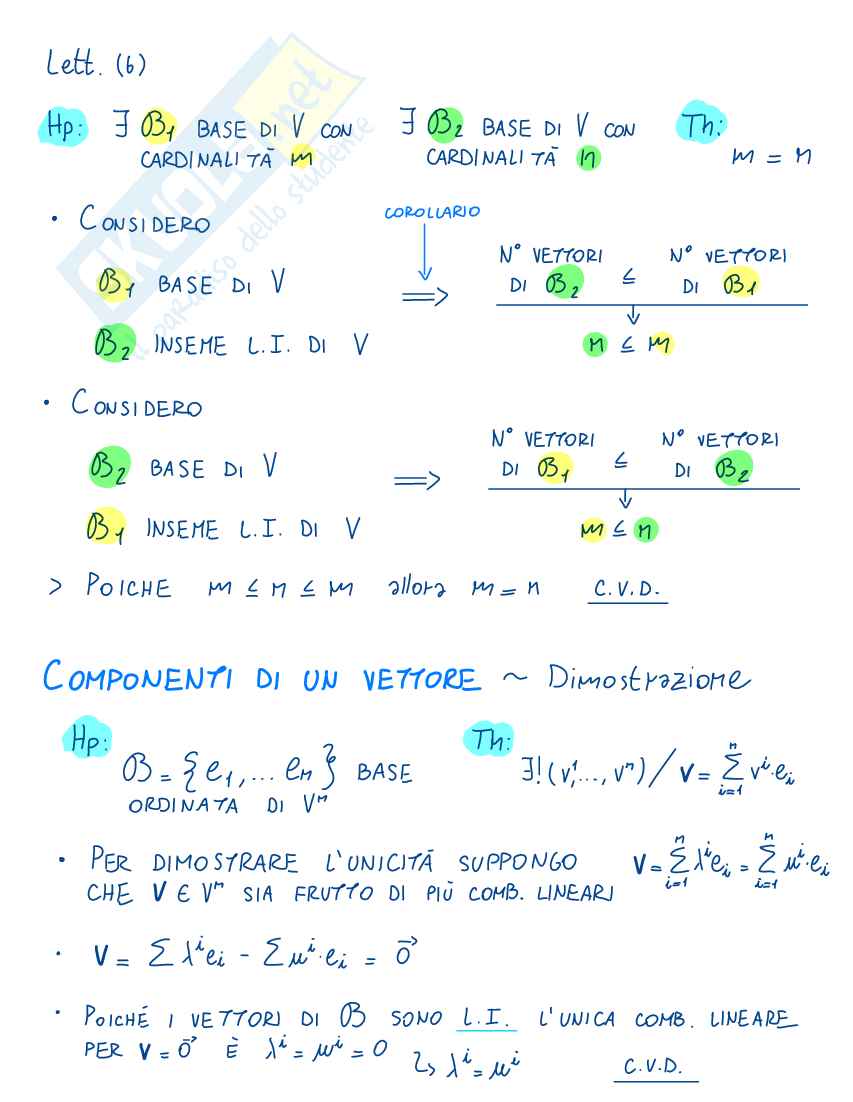 Lett. (6)
Hp: ∃ B₁ BASE DI V CON CARDINALITÀ m
∃ B₂ BASE DI V CON CARDINALITÀ n
Th: m = n
SKUOLA.net
il paradiso dello studente
• CONSIDERO
B₁ BASE DI V
B₂ INSEME L.I. DI V
COROLLARIO
⟹
N° VETTORI DI B₂ ≤ N° VETTORI DI B₁
↓
n ≤ m
• CONSIDERO
B₂ BASE DI V
B₁ INSEME L.I. DI V
⟹
N° VETTORI DI B₁ ≤ N° VETTORI DI B₂
↓
m ≤ n
> POICHE m ≤ n ≤ m allora m = n C.V.D.
COMPONENTI DI UN VETTORE ~ Dimostrazione
Hp: B = {e₁, ... eₙ} BASE
ORDINATA DI Vⁿ
Th: ∃! (v¹,..., vⁿ) / v = Σⁿᵢ₌₁ vⁱ·eᵢ
• PER DIMOSTRARE L'UNICITÁ SUPPONGO
CHE V ∈ Vⁿ SIA FRUTTO DI PIÙ COMB. LINEARI
v = Σⁿᵢ₌₁ λⁱeᵢ = Σⁿᵢ₌₁ μⁱ·eᵢ
• V = Σ λⁱeᵢ - Σ μⁱ·eᵢ = 0⃗
• POICHÉ I VETTORI DI B SONO L.I. L'UNICA COMB. LINEARE
PER V = 0⃗ È λⁱ = μⁱ = 0 ↳ λⁱ = μⁱ C.V.D.